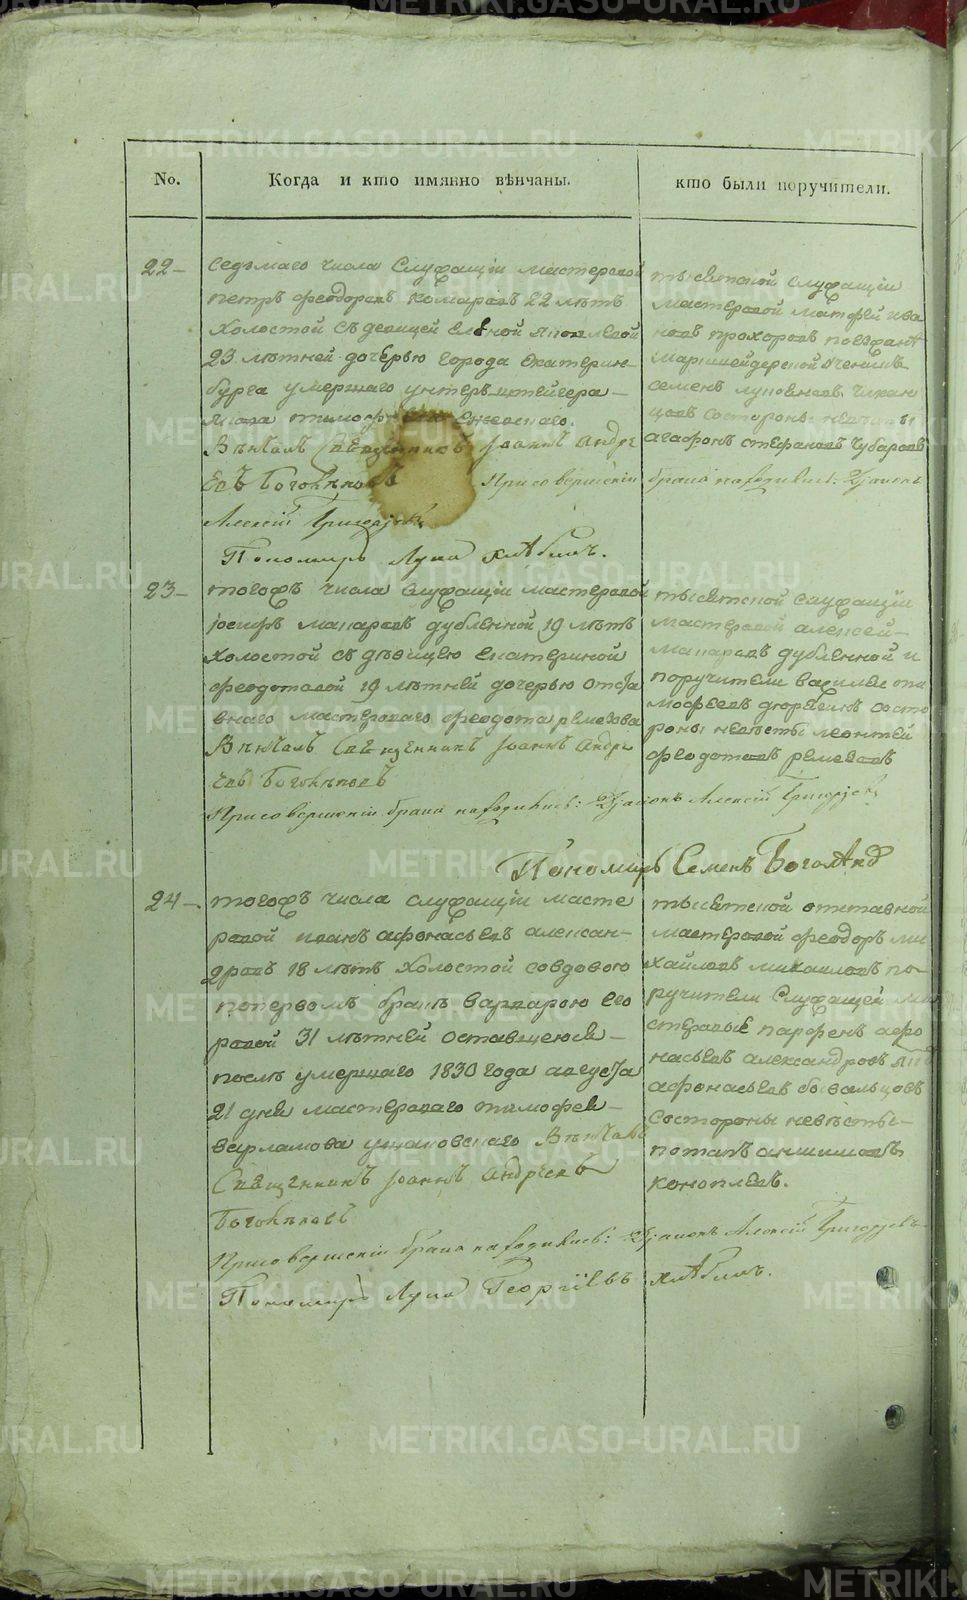 No.
Когда и кто имянно вѣнчаны.
кто были поручители.
22-
седьмаго числа служащiй мастеровой
петръ феодоровъ комаровъ 22 лѣтъ
холостой съ девицей еленой яковлевой
23 лѣтней дочерью города екатерин-
бурга умершаго унтеръ-штейгера
якова
Вѣнчалъ Священникъ Iоаннъ Андре
евъ
При совершенiи брака находились: Дiаконъ
Алексiй Григорьевъ
Пономарь Лука Хлѣбинъ.
тысяцкой служащiй
мастеровой матфей ива
новъ прохоровъ
маркшейдерской ученикъ
семенъ
со стороны невѣсты
агафонъ стефановъ чубаровъ
23-
тогожъ числа служащiй мастеровой
iосифъ макаровъ дубленной 19 лѣтъ
холостой съ дѣвицею екатериной
феодотовой 19 лѣтней дочерью отста
внаго мастероваго феодота ремезова
Вѣнчалъ Священникъ Iоаннъ Андре
евъ
При совершенiи брака находились: Дiаконъ Алексiй Григорьевъ
Пономарь Семенъ
тысяцкой служащiй
мастеровой алексей
макаровъ дубленной и
поручители василей ти
мофеевъ со сто
роны невѣсты леонтей
феодотовъ ремезовъ
24-
тогожъ числа служащiй масте
ровой иванъ афонасьевъ алексан-
дровъ 18 лѣтъ холостой со вдовою
по первомъ бракѣ варварою его
ровой 31 лѣтней оставшеюся
послѣ умершаго 1830 года августа
21 дня мастероваго тимофея
варламова ушаковскаго Вѣнчалъ
Священникъ Iоаннъ Андреевъ
При совершенiи брака находились: Дiаконъ Алексiй Григорьевъ
Пономарь Лука Георгiевъ Хлѣбинъ.
тысяцкой отставной
мастеровой феодоръ ми
хайловъ михаиловъ по
ручители служащей ма
стеровые парфенъ афо
насьевъ александровъ
афонасьевъ бывальцовъ
со стороны невѣсты
потапъ анисимовъ
коноплевъ.
METRIKI.GASO-URAL.RU